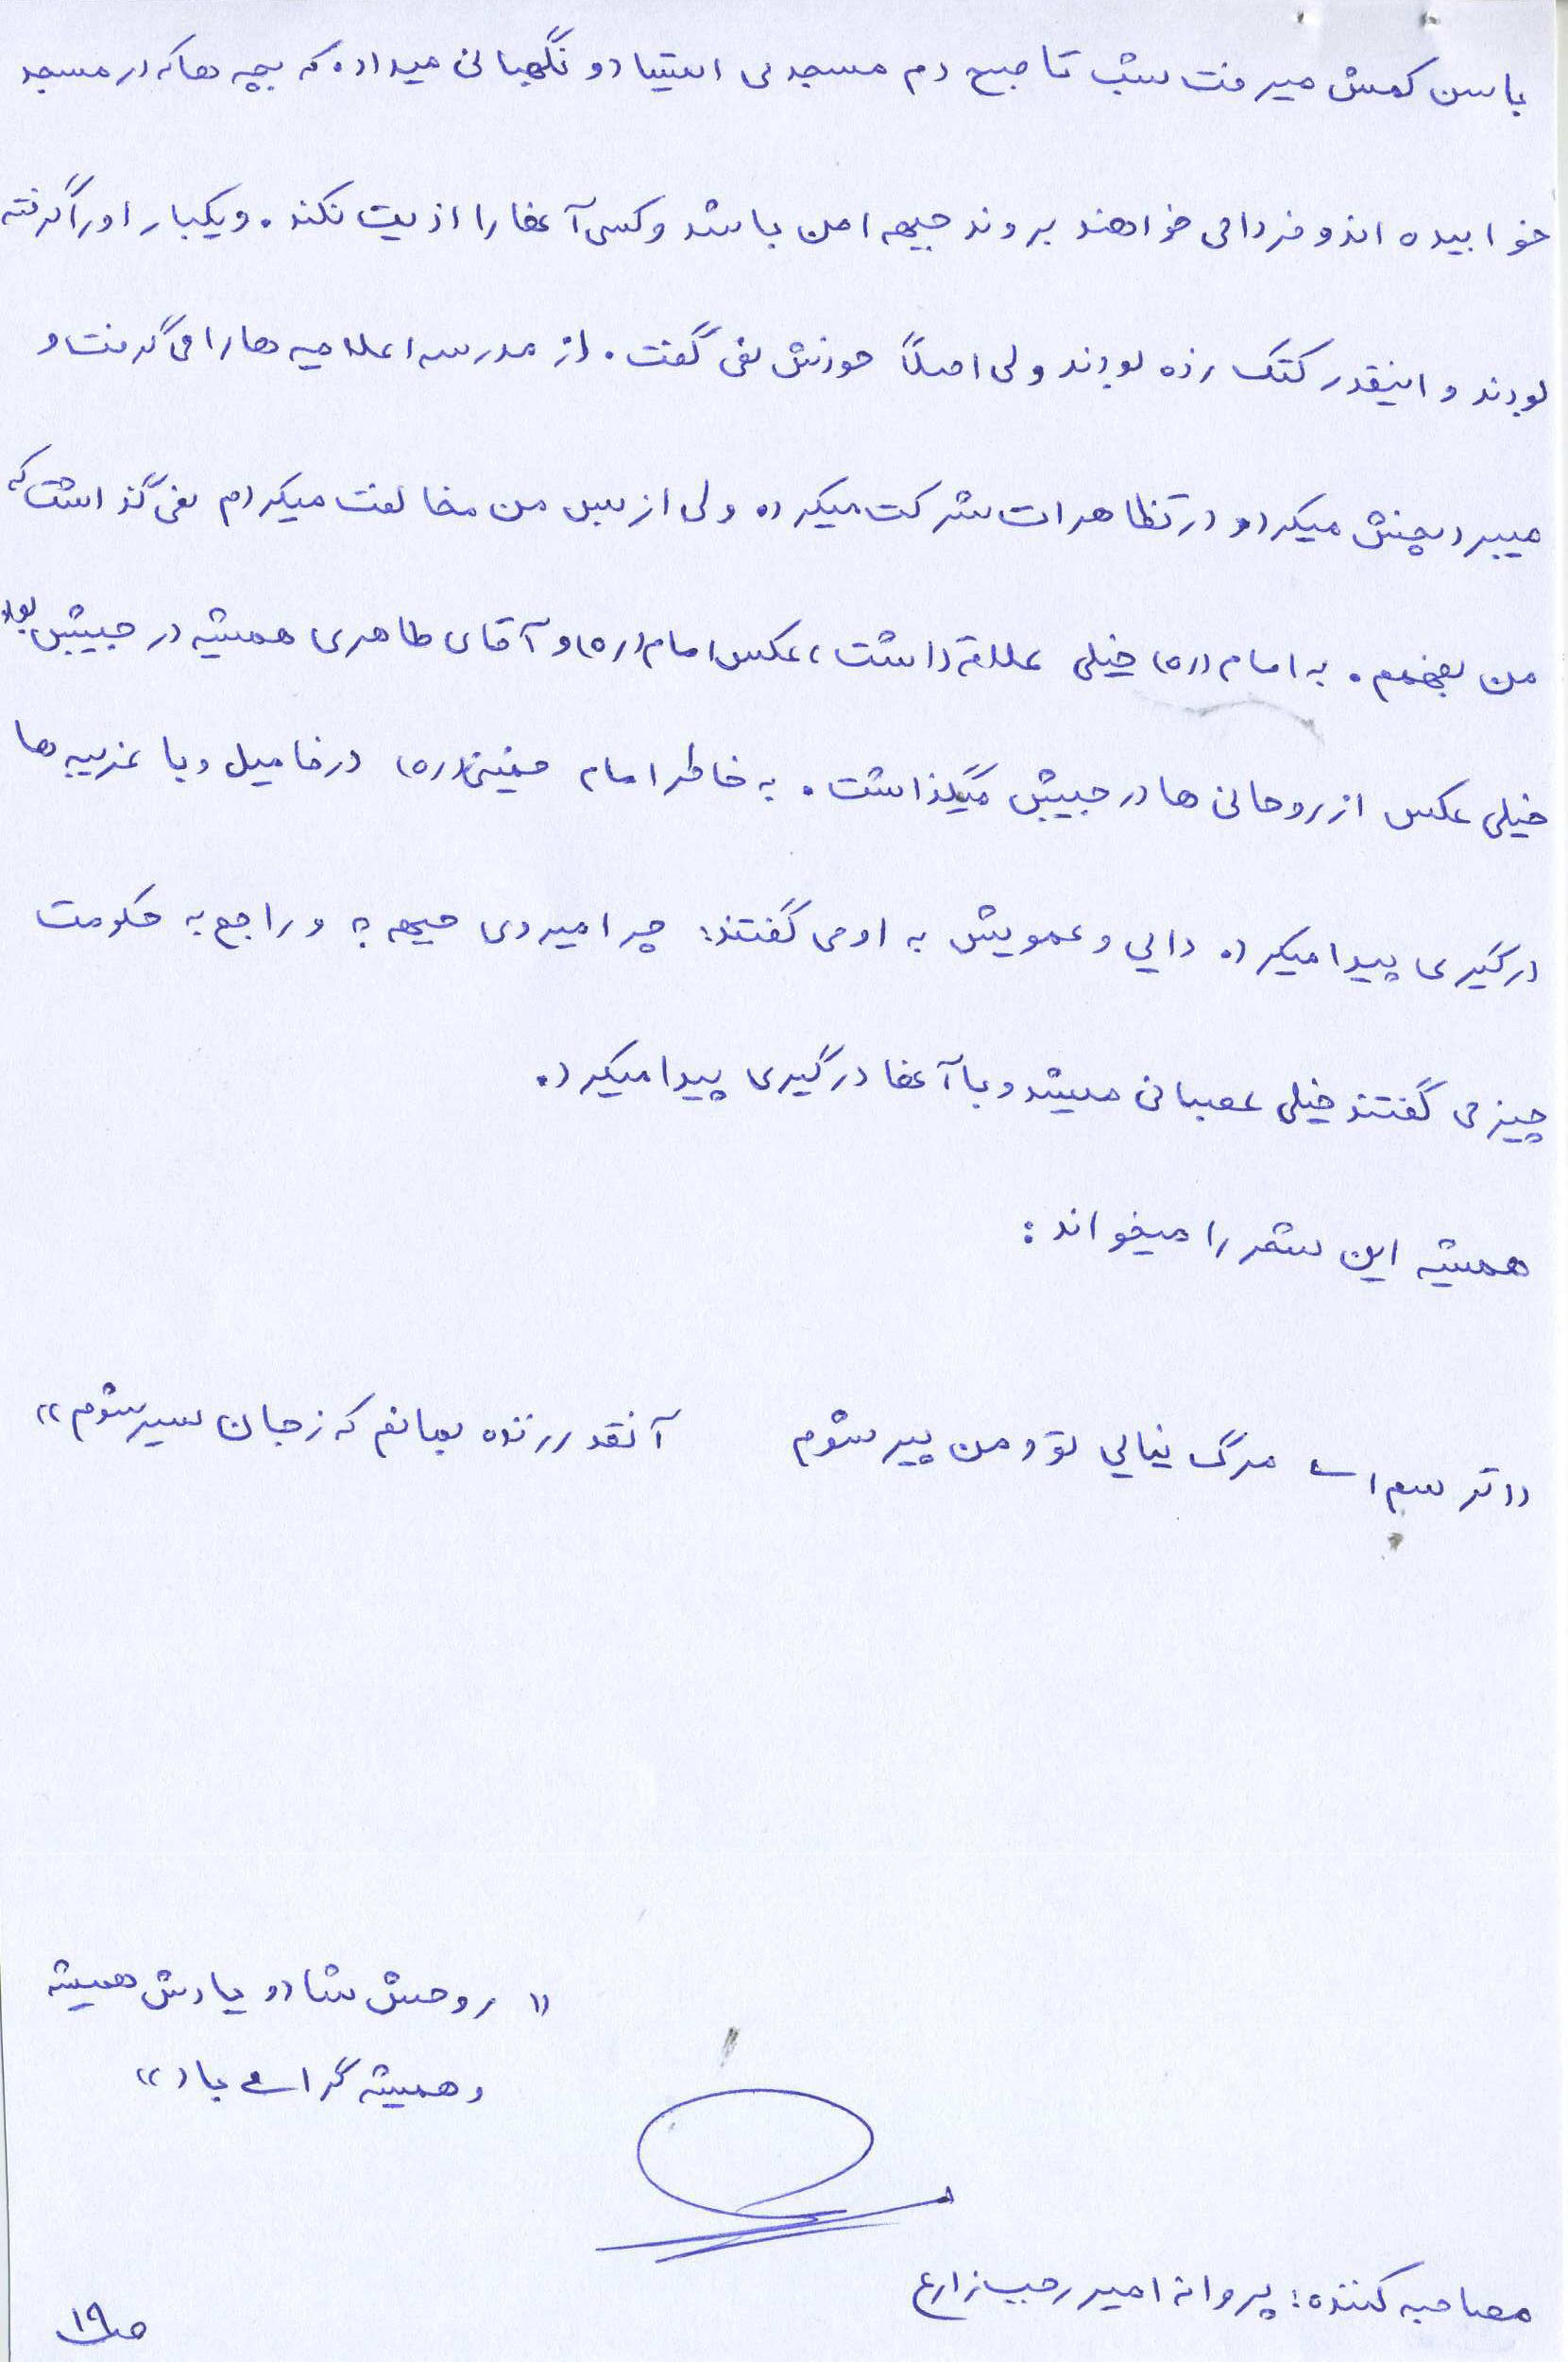 با سن کمش میرفت شب تا صبح دم مسجد می ایستاد و نگهبانی میداد. که بچه ها که در مسجد
خوابیده اند و فردا می خواهند بروند جبهه امن باشد و کسی آنها را اذیت نکند. و یکبار او را گرفته
بودند و اینقدر کتک زده بودند ولی اصلاً حرفش نمی گفت. از مدرسه اعلامیه ها را می گرفت و
میبرد پخش میکرد و در تظاهرات شرکت میکرد. ولی از بس من مخالفت میکردم نمی گذاشت که
من بفهمم. به امام (ره) خیلی علاقه داشت، عکس امام (ره) و آقای طاهری همیشه در جیبش بود
خیلی عکس از روحانی ها در جیبش میگذاشت. به خاطر امام خمینی (ره) در فامیل و با غریبه ها
درگیری پیدا میکرد. دایی و عمویش به او می گفتند: چرا میروی جبهه؟ و راجع به حکومت
چیزی می گفتند خیلی عصبانی میشد و با آنها درگیری پیدا میکرد.
همیشه این شعر را میخواند:
«ترسم ای مرگ نیایی تو و من پیر شوم آنقدر زنده بمانم که ز جان سیر شوم»
« روحش شاد و یادش همیشه
و همیشه گرامی باد»
مصاحبه کننده: پروانه امیر رجب زارع
ص۱۹